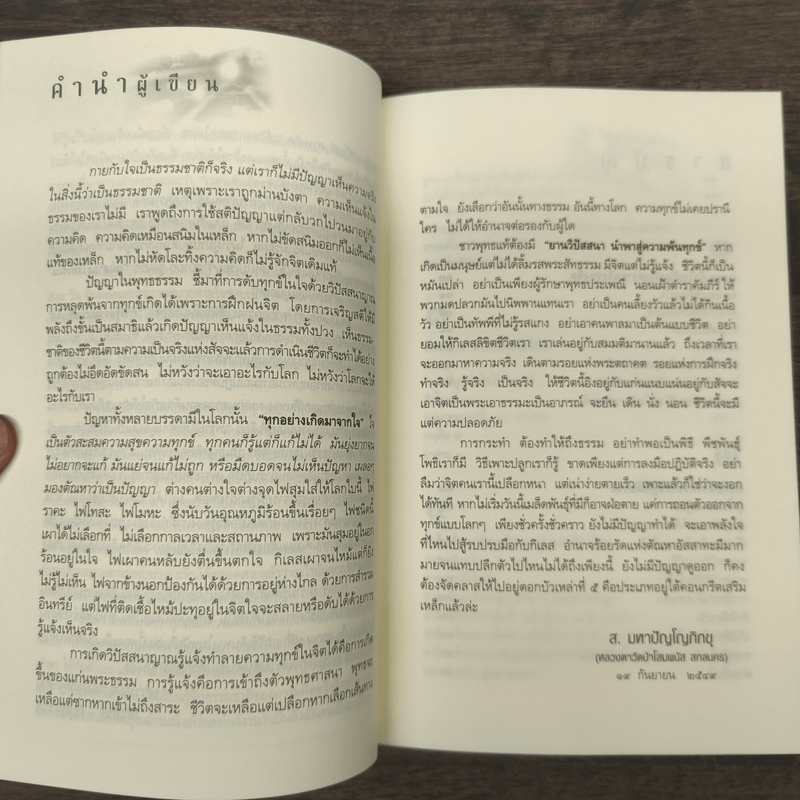 คำนำผู้เขียน
กายกับใจเป็นธรรมชาติก็จริง แต่เราก็ไม่มีปัญญาเห็นความจริง
ในสิ่งนี้ว่าเป็นธรรมชาติ เหตุเพราะเราถูกม่านบังตา ความเห็นแจ้งใน
ธรรมของเราไม่มี เราพูดถึงการใช้สติปัญญาแต่กลับวกไปวนมาอยู่กับ
ความคิด ความคิดเหมือนสนิมในเหล็ก หากไม่ขัดสนิมออกก็ไม่เห็นเนื้อ
แท้ของเหล็ก หากไม่หัดโละทิ้งความคิดก็ไม่รู้จักจิตเดิมแท้
ปัญญาในพุทธธรรม ชี้มาที่การดับทุกข์ในใจด้วยวิปัสสนาญาณ
การหลุดพ้นจากทุกข์เกิดได้เพราะการฝึกฝนจิต โดยการเจริญสติให้มี
พลังถึงขั้นเป็นสมาธิแล้วเกิดปัญญาเห็นแจ้งในธรรมทั้งปวง เห็นธรรม-
ชาติของชีวิตนี้ตามความเป็นจริงแห่งสัจจะแล้วการดำเนินชีวิตก็จะทำได้อย่าง
ถูกต้องไม่อึดอัดขัดสน ไม่หวังว่าจะเอาอะไรกับโลก ไม่หวังว่าโลกจะให้
อะไรกับเรา
ปัญหาทั้งหลายบรรดามีในโลกนั้น "ทุกอย่างเกิดมาจากใจ" ใจ
เป็นตัวสะสมความสุขความทุกข์ ทุกคนก็รู้แต่ก็แก้ไม่ได้ มันยุ่งยากจน
ไม่อยากจะแก้ มันแย่จนแก้ไม่ถูก หรือมืดบอดจนไม่เห็นปัญหา เผลอๆ
มองตัณหาว่าเป็นปัญญา ต่างคนต่างใจต่างจุดไฟสุมใส่ให้โลกใบนี้ ไฟ
ราคะ ไฟโทสะ ไฟโมหะ ซึ่งนับวันอุณหภูมิร้อนขึ้นเรื่อยๆ ไฟชนิดนี้
เผาได้ไม่เลือกที่ ไม่เลือกกาลเวลาและสถานภาพ เพราะมันสุมอยู่ในอก
ร้อนอยู่ในใจ ไฟเผาคนหลับยังตื่นขึ้นตกใจ กิเลสเผาจนไหม้แต่ก็ยัง
ไม่รู้ไม่เห็น ไฟจากข้างนอกป้องกันได้ด้วยการอยู่ห่างไกล ด้วยการสำรวม
อินทรีย์ แต่ไฟที่ติดเชื้อไหม้ปะทุอยู่ในจิตใจจะสลายหรือดับได้ด้วยการ
รู้แจ้งเห็นจริง
การเกิดวิปัสสนาญาณรู้แจ้งทำลายความทุกข์ในจิตได้คือการเกิด
ขึ้นของแก่นพระธรรม การรู้แจ้งคือการเข้าถึงตัวพุทธศาสนา พุทธจะ
เหลือแต่ซากหากเข้าไม่ถึงสาระ ชีวิตจะเหลือแต่เปลือกหากเลือกเส้นทาง
ตามใจ ยังเลือกว่าอันนั้นทางธรรม อันนี้ทางโลก ความทุกข์ไม่เคยปรานี
ใคร ไม่ได้ให้อำนาจต่อรองกับผู้ใด
ชาวพุทธแท้ต้องมี "ยานวิปัสสนา นำพาสู่ความพ้นทุกข์" หาก
เกิดเป็นมนุษย์แต่ไม่ได้ลิ้มรสพระสัทธรรม มีจิตแต่ไม่รู้แจ้ง ชีวิตนี้ก็เป็น
หมันเปล่า อย่าเป็นเพียงผู้รักษาพุทธประเพณี นอนเฝ้าตำราคัมภีร์ ให้
พวกมดปลวกมันไปนิพพานแทนเรา อย่าเป็นคนเลี้ยงวัวแล้วไม่ได้กินเนื้อ
วัว อย่าเป็นทัพพีที่ไม่รู้รสแกง อย่าเอาคนพาลมาเป็นต้นแบบชีวิต อย่า
ยอมให้กิเลสลิขิตชีวิตเรา เราเล่นอยู่กับสมมติมานานแล้ว ถึงเวลาที่เรา
จะออกมาหาความจริง เดินตามรอยแห่งพระตถาคต รอยแห่งการฝึกจริง
ทำจริง รู้จริง เป็นจริง ให้ชีวิตนี้อิงอยู่กับแก่นแนบแน่นอยู่กับสัจจะ
เอาจิตเป็นพระเอาธรรมะเป็นอาภรณ์ จะยืน เดิน นั่ง นอน ชีวิตนี้จะมี
แต่ความปลอดภัย
การกระทำ ต้องทำให้ถึงธรรม อย่าทำพอเป็นพิธี พืชพันธุ์
โพธิเราก็มี วิธีเพาะปลูกเราก็รู้ ขาดเพียงแต่การลงมือปฏิบัติจริง อย่า
ลืมว่าจิตคนเรานี้เปลือกหนา แต่เน่าง่ายตายเร็ว เพาะแล้วก็ใช่ว่าจะงอก
ได้ทันที หากไม่เริ่มวันนี้เมล็ดพันธุ์ที่มีก็อาจฝ่อตาย แค่การถอนตัวออกจาก
ทุกข์แบบโลกๆ เพียงชั่วครั้งชั่วคราว ยังไม่มีปัญญาทำได้ จะเอาพลังใจ
ที่ไหนไปสู้รบปรบมือกับกิเลส อำนาจร้อยรัดแห่งตัณหาอัสสาทะมีมาก
มายจนแทบปลีกตัวไปไหนไม่ได้ถึงเพียงนี้ ยังไม่มีปัญญาดูออก ก็คง
ต้องจัดคลาสให้ไปอยู่ดอกบัวเหล่าที่ ๕ คือประเภทอยู่ใต้คอนกรีตเสริม
เหล็กแล้วล่ะ
ส. มหาปัญโญภิกขุ
(หลวงตาวัดป่าโสมพนัส สกลนคร)
๑๙ กันยายน ๒๕๔๙